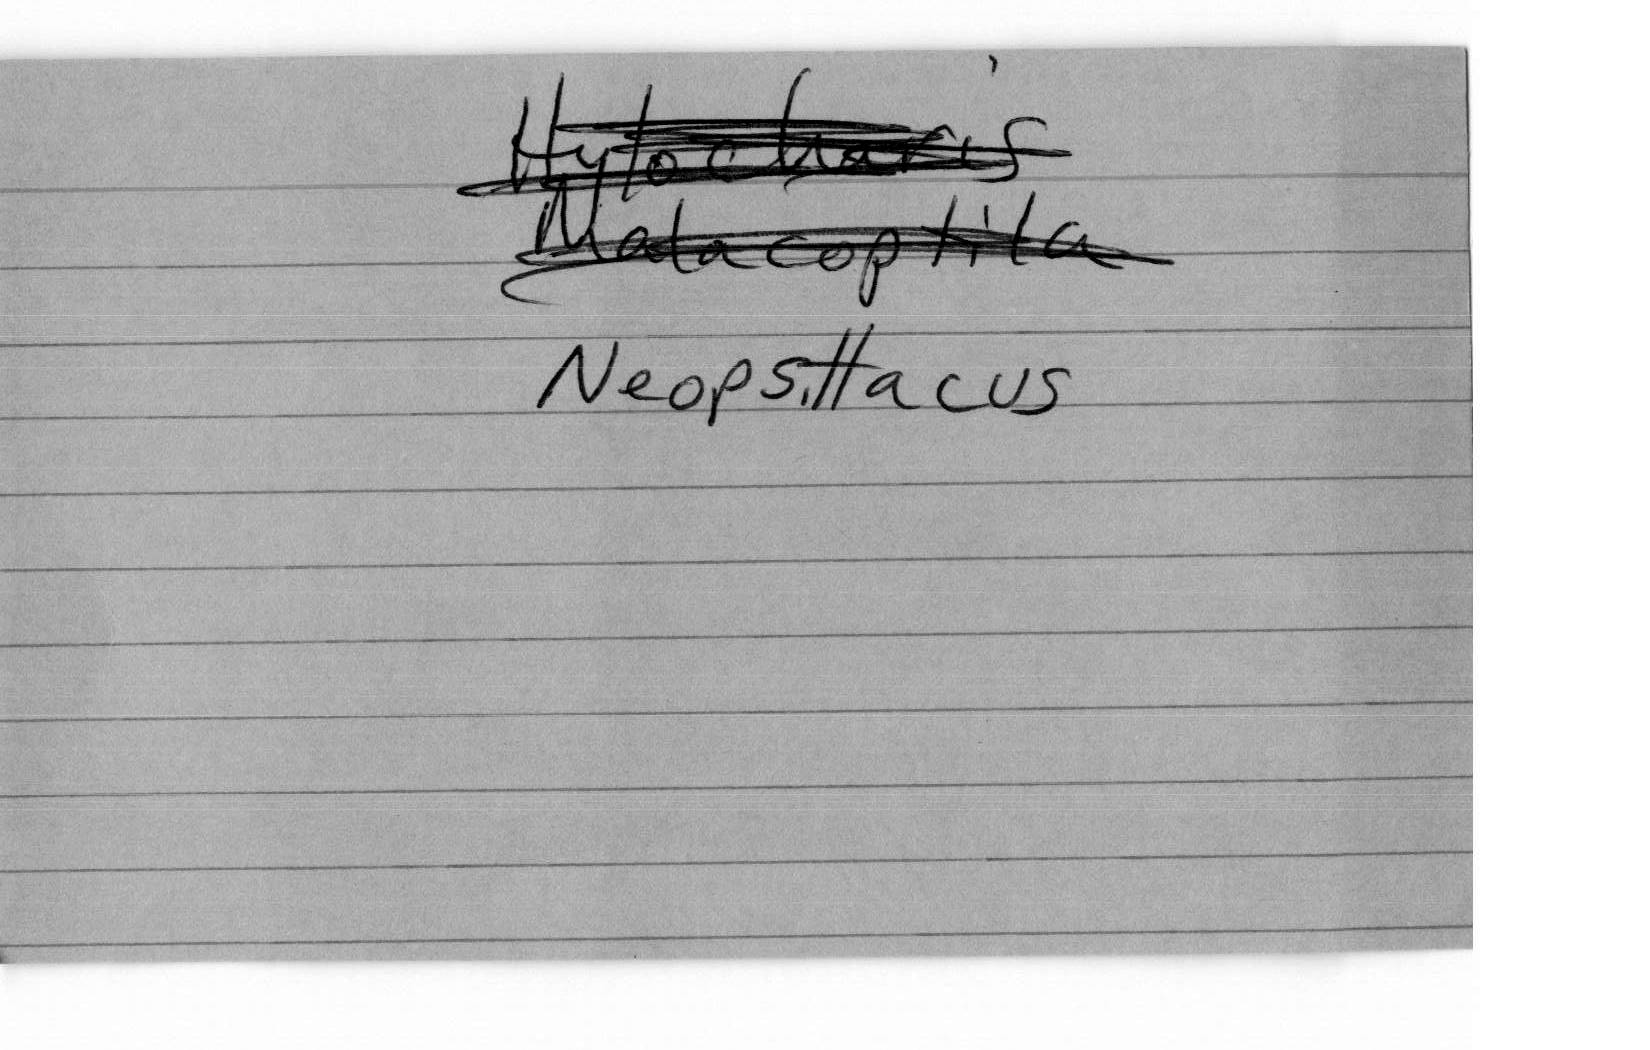 Hylocharis
Malacoptila
Neopsittacus